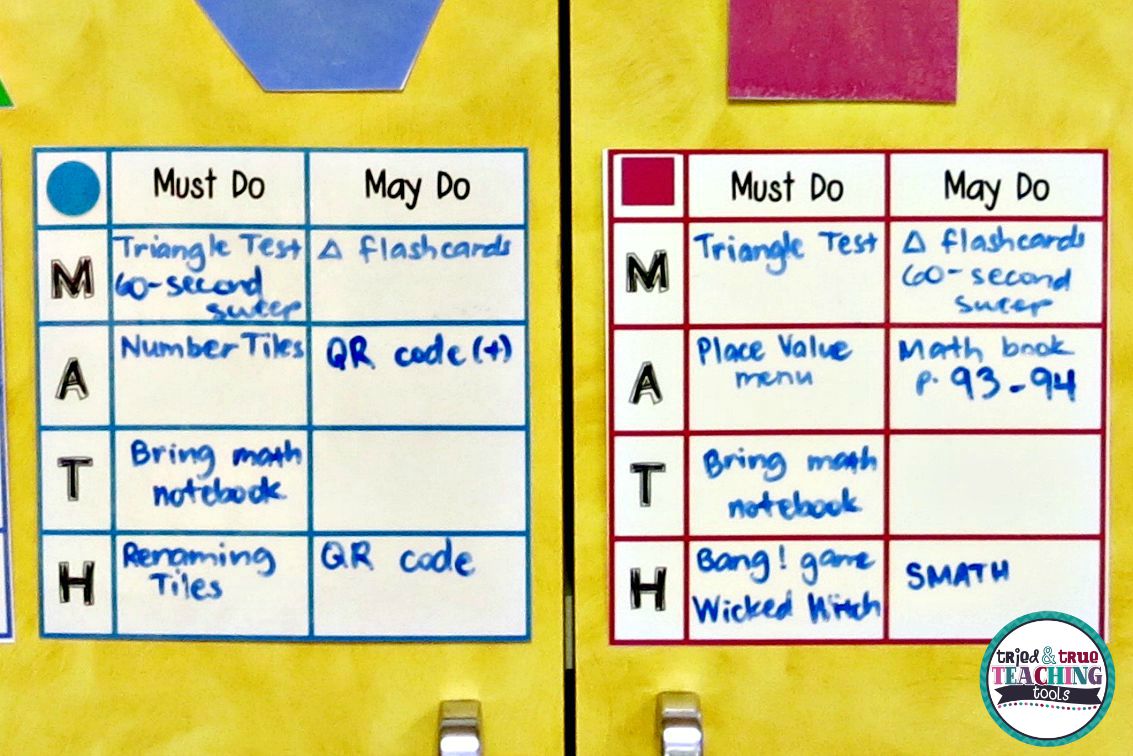 Must Do
May Do
M
Triangle Test
60-second
sweep
Δ flashcards
A
Number Tiles
QR code (+)
T
Bring math
notebook
H
Renaming
Tiles
QR code
Must Do
May Do
M
Triangle Test
Δ flashcards
60-second
sweep
A
Place Value
menu
Math book
p. 93-94
T
Bring math
notebook
H
Bang! game
Wicked
SMATH
tried & true
TEACHING
tools